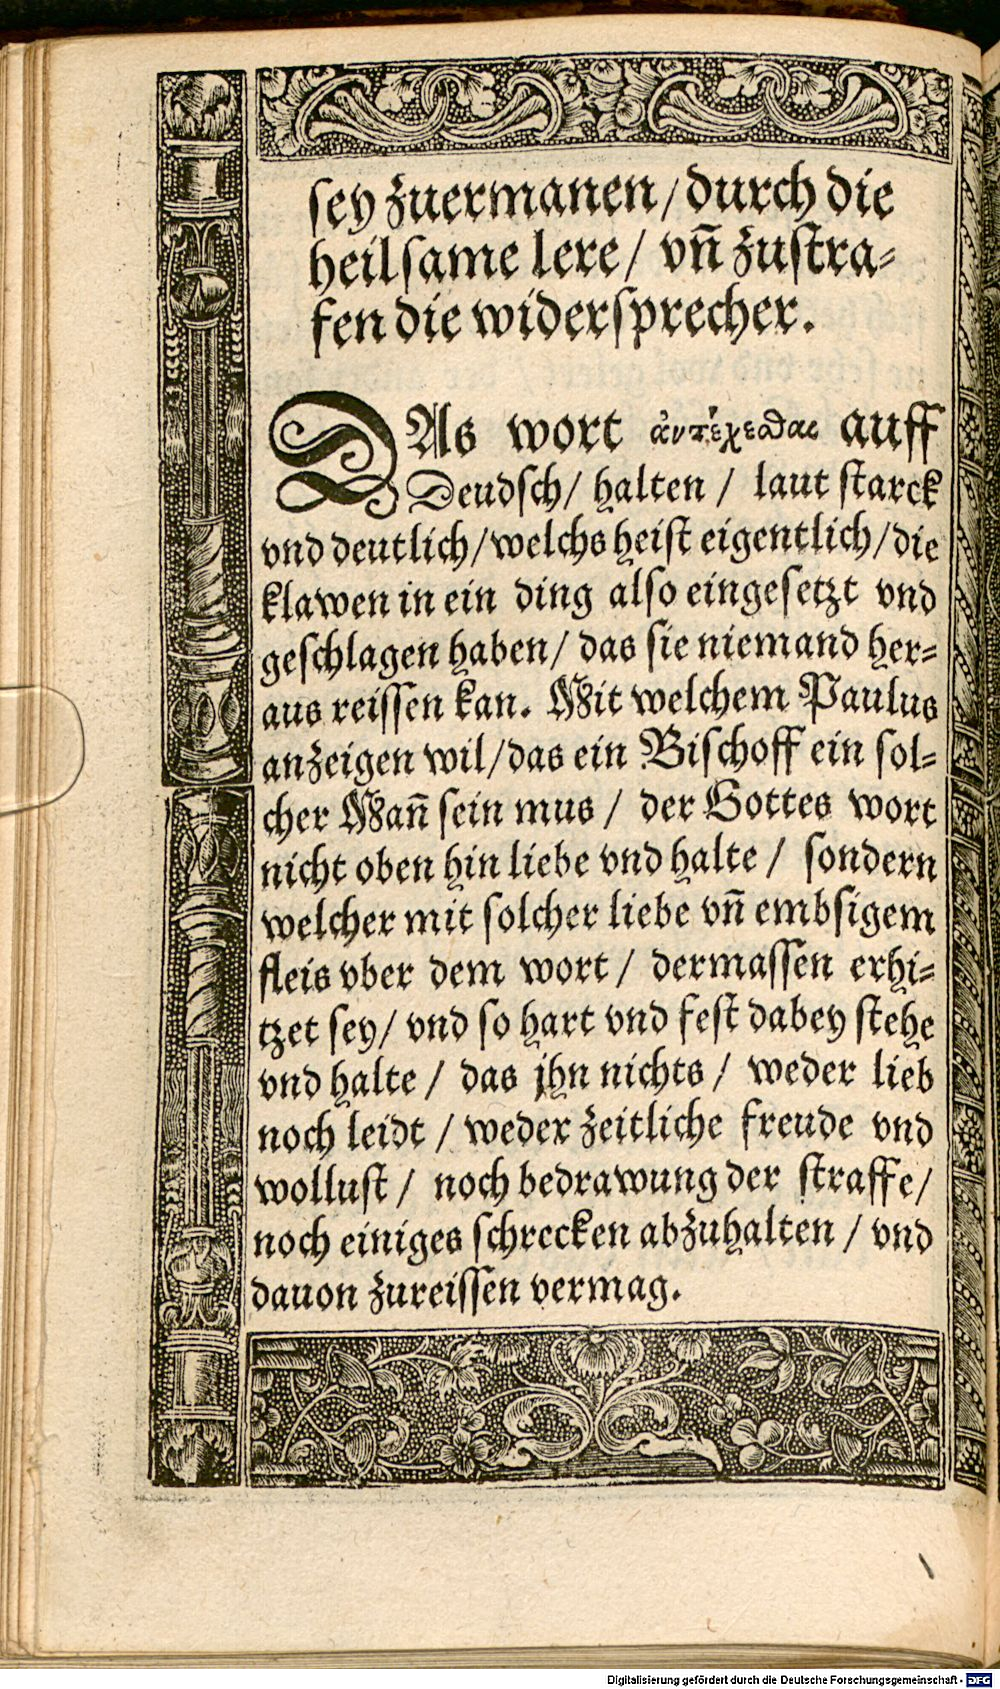 sey zuermanen/durch die
heilsame lere/ vñ zustra-
fen die widersprecher.
DAs wort ἀντέχεσθαι auff
Deudsch/ halten / laut starck
vnd deutlich/welchs heist eigentlich/die
klawen in ein ding also eingesetzt vnd
geschlagen haben/ das sie niemand her-
aus reissen kan. Mit welchem Paulus
anzeigen wil/das ein Bischoff ein sol-
cher Mañ sein mus / der Gottes wort
nicht oben hin liebe vnd halte / sondern
welcher mit solcher liebe vñ embsigem
fleis vber dem wort / dermassen erhi-
tzet sey/ vnd so hart vnd fest dabey stehe
vnd halte / das jhn nichts / weder lieb
noch leidt / weder zeitliche freude vnd
wollust / noch bedrawung der straffe/
noch einiges schrecken abzuhalten / vnd
dauon zureissen vermag.
Digitalisierung gefördert durch die Deutsche Forschungsgemeinschaft - DFG